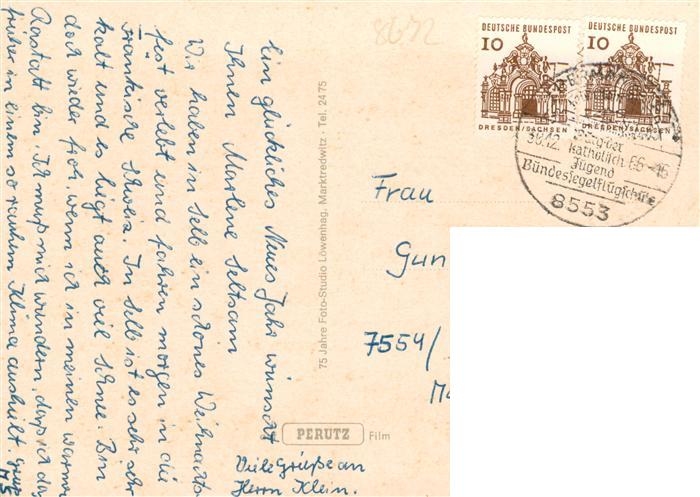 8672
DEUTSCHE BUNDESPOST
10
DRESDEN/SACHSEN
DEUTSCHE BUNDESPOST
10
DRESDEN/SACHSEN
Tag der
30.12. katholisch. 66-16
Jugend
Bundessegelflugschule
8553
Ein glückliches Neues Jahr wünscht
Ihnen Marlene Seltsam
Wir haben in Selb ein schönes Weihnachts
fest verlebt und fahren morgen in die
Fränkische Schweiz. In Selb ist es sehr sehr
kalt und es liegt auch viel Schnee. Bin
doch wieder froh, wenn ich in meinem warmen
Rastatt bin. Ich muß mich wundern, daß ich das
früher in einem so rauhen Klima aushielt
Viele Grüße an
Herrn Klein.
75 Jahre Foto-Studio Löwenhag, Marktredwitz · Tel. 2475
PERUTZ Film
Frau
Gun
7554/